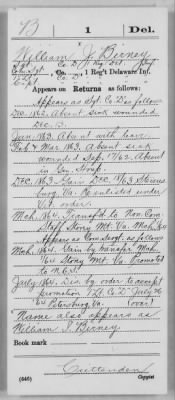 B 1 Del.
William J. Birney
Co. D, 1 Reg't Delaware Inf.
Appears on Returns as follows:
Appears as Sgt. Co. D as follows
Dec. 1862. Absent sick wounded
Dec. 13.
Jan. 1863. Absent with leave
Feb & Mar. 1863. Absent sick
wounded Sep. 17/62. Absent
in Gen. Hosp.
Dec. 1863. Gain Dec. 1863
Va. Reenlisted under
Vet. order.
Mch. 1864. Transf'd to Non Com.
Staff Stony Mt. Va. Mch.
Appears as Com. Sergt. as follows
Mch. 1864. Gain by transfer Mch.
Stony Mt. Va. Promoted
to N.C.S.
July 1864. Dis. by order to accept
promotion 1 Lt. Co. D July
Petersburg Va. (over)
Name also appears as
William I. Birney
Book mark
(646)
Cuttenden
Copyist